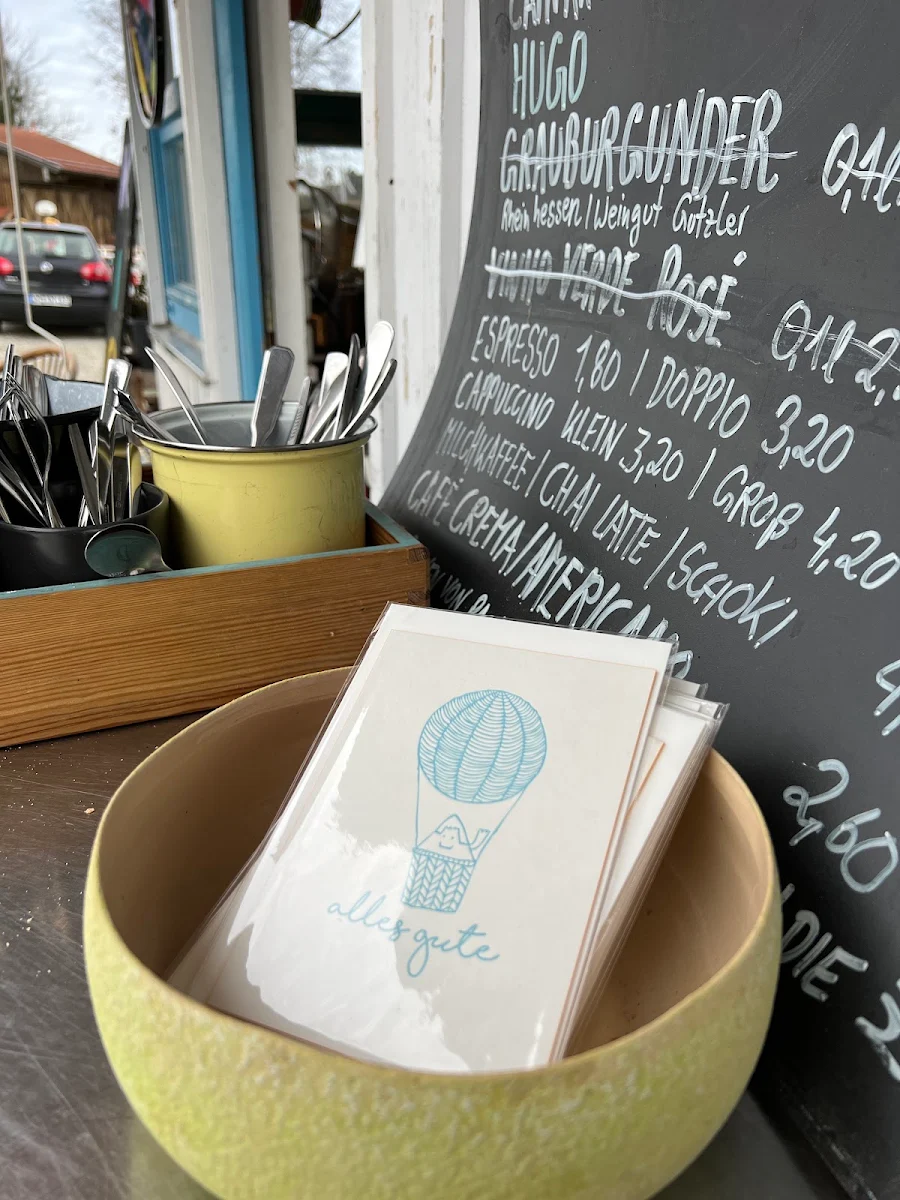 HUGO
GRAUBURGUNDER 0,1l
Rheinhessen / Weingut Gützler
VINHO VERDE ROSÉ 0,1l 2,
ESPRESSO 1,80 / DOPPIO 3,20
CAPPUCCINO KLEIN 3,20 / GROß 4,20
MILCHKAFFEE / CHAI LATTE / SCHOKI 4,
CAFÉ CREMA / AMERICANO 2,60
VON
DIE 3
alles gute